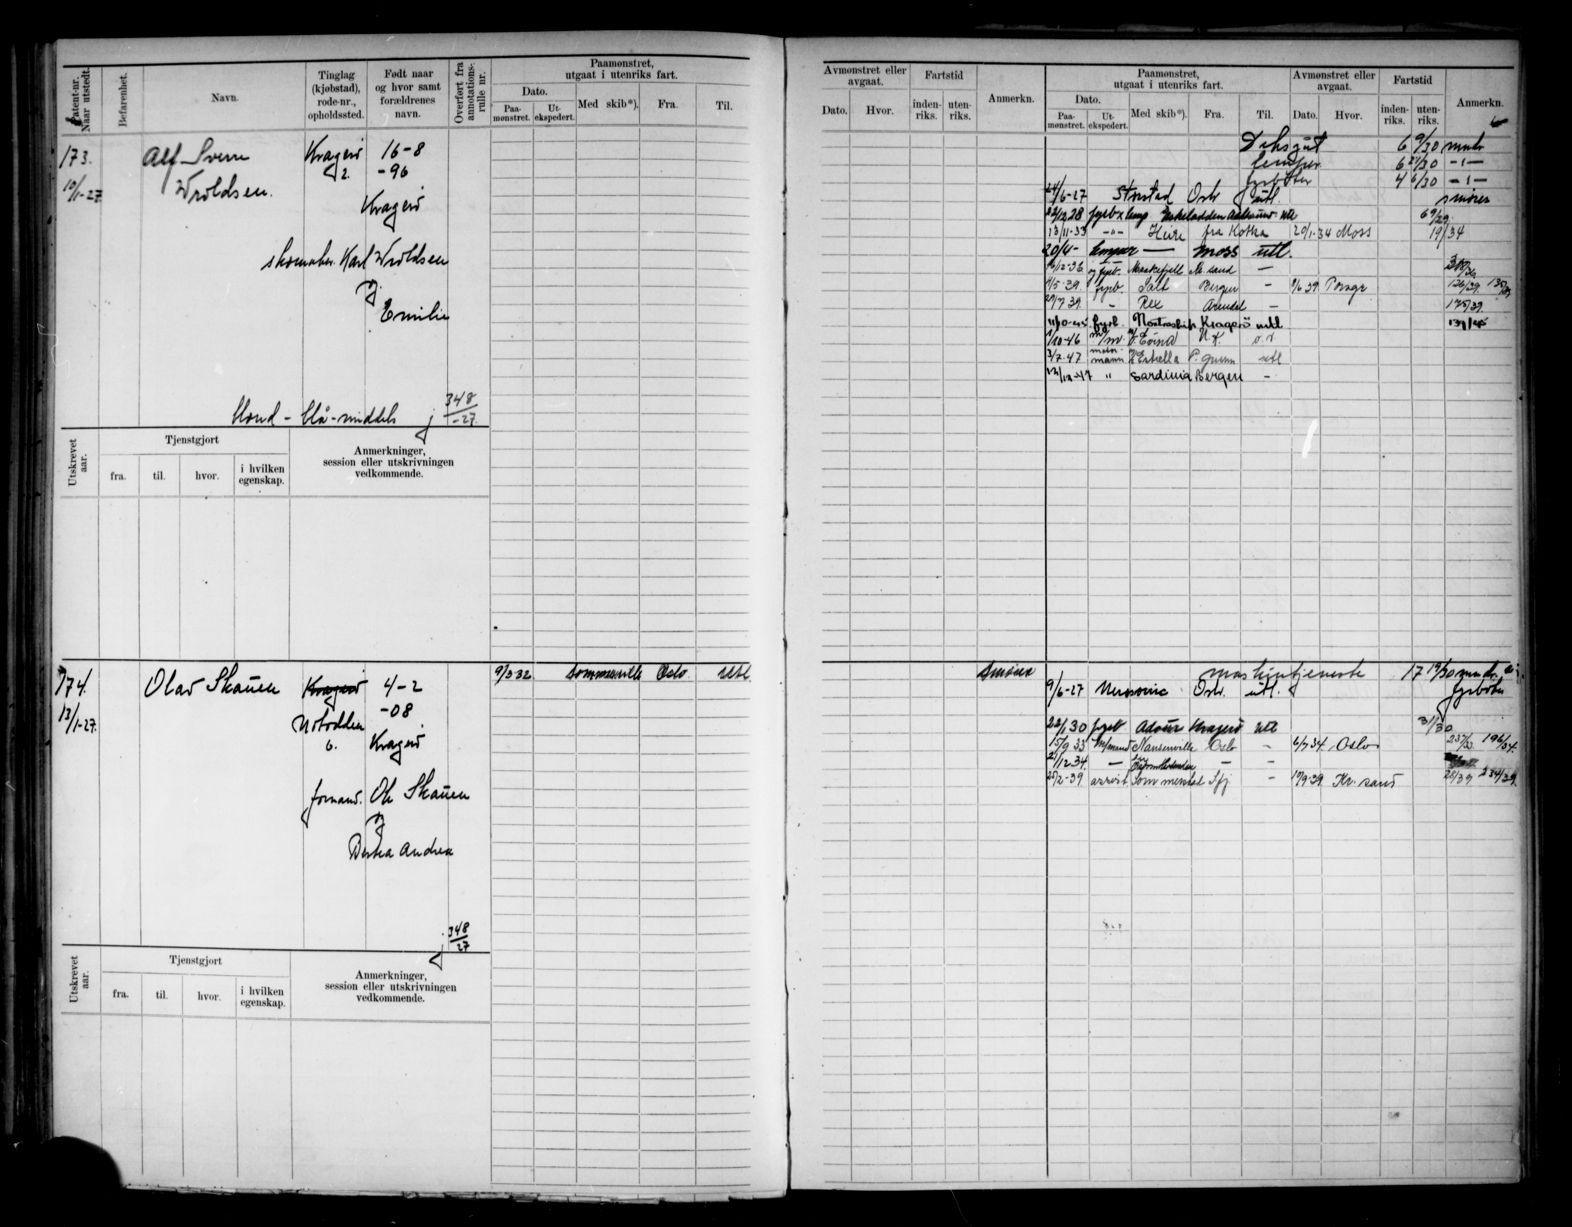 Patent-nr. Naar utstedt.
Befarenhet.
Navn.
Tinglag (kjøbstad), rode-nr., opholdssted.
Født naar og hvor samt forældrenes navn.
Overført fra annotations-rulle nr.
Paamønstret, utgaat i utenriks fart.
Dato.
Paa-mønstret.
Ut-ekspedert.
Med skib*).
Fra.
Til.
173.
10/1-27
Alf Sverre
Wroldsen.
Kragerø
2.
16-8
-96
Kragerø
Karl Wroldsen
og
Emilie
blond - blå - middels
348
-27
Utskrevet aar.
Tjenstgjort
fra.
til.
hvor.
i hvilken egenskap.
Anmerkninger, session eller utskrivningen vedkommende.
174.
13/1-27.
Olav Skauen
Kragerø
Notodden
6.
4-2
-08
Kragerø
formand. Ole Skauen
og
Andrea
348
27
9/3-32 Sommerville Oslo utl.
Utskrevet aar.
Tjenstgjort
fra.
til.
hvor.
i hvilken egenskap.
Anmerkninger, session eller utskrivningen vedkommende.
Avmønstret eller avgaat.
Dato.
Hvor.
Fartstid
inden-riks.
uten-riks.
Anmerkn.
Paamønstret, utgaat i utenriks fart.
Dato.
Paa-mønstret.
Ut-ekspedert.
Med skib*).
Fra.
Til.
Avmønstret eller avgaat.
Dato.
Hvor.
Fartstid
inden-riks.
uten-riks.
Anmerkn.
Dæksgut 6 9/30 mndr
lemper 6 21/30 -"-
fyrbøter 4 6/30 -"-
24/6-27 Storstad Oslo utl.
smører
28 fyrb x lemp utl
13/11-33 -"- fra Kotka 20/1-34 Moss 19/34
20/4- lemper Moss utl.
12-36 og fyrb. Maakefjell sand -
5.39. fyrb. Salt Bergen - 6 39 126/39. 135/39
7 39. - Rex Arendal - 175/39
10-45 fyrb. Kragerø utl
10-46 U.K.
3/7-47 Estrella P. Grunn utl
12-47 " Sardinia Bergen -
Smører
maskintjeneste 17 19/30 mndr.
fyrbøter
9/6-27 Oslo utl.
22/1 30 fyrb Adour Kragerø utl 31/30
15/9 33 Nansenville Oslo - 6/7 34. Oslo 237/33 196/34.
12-34.
2-39 assist Sommerstad - 19/9 39 Kr. sand 28/39 234/39.